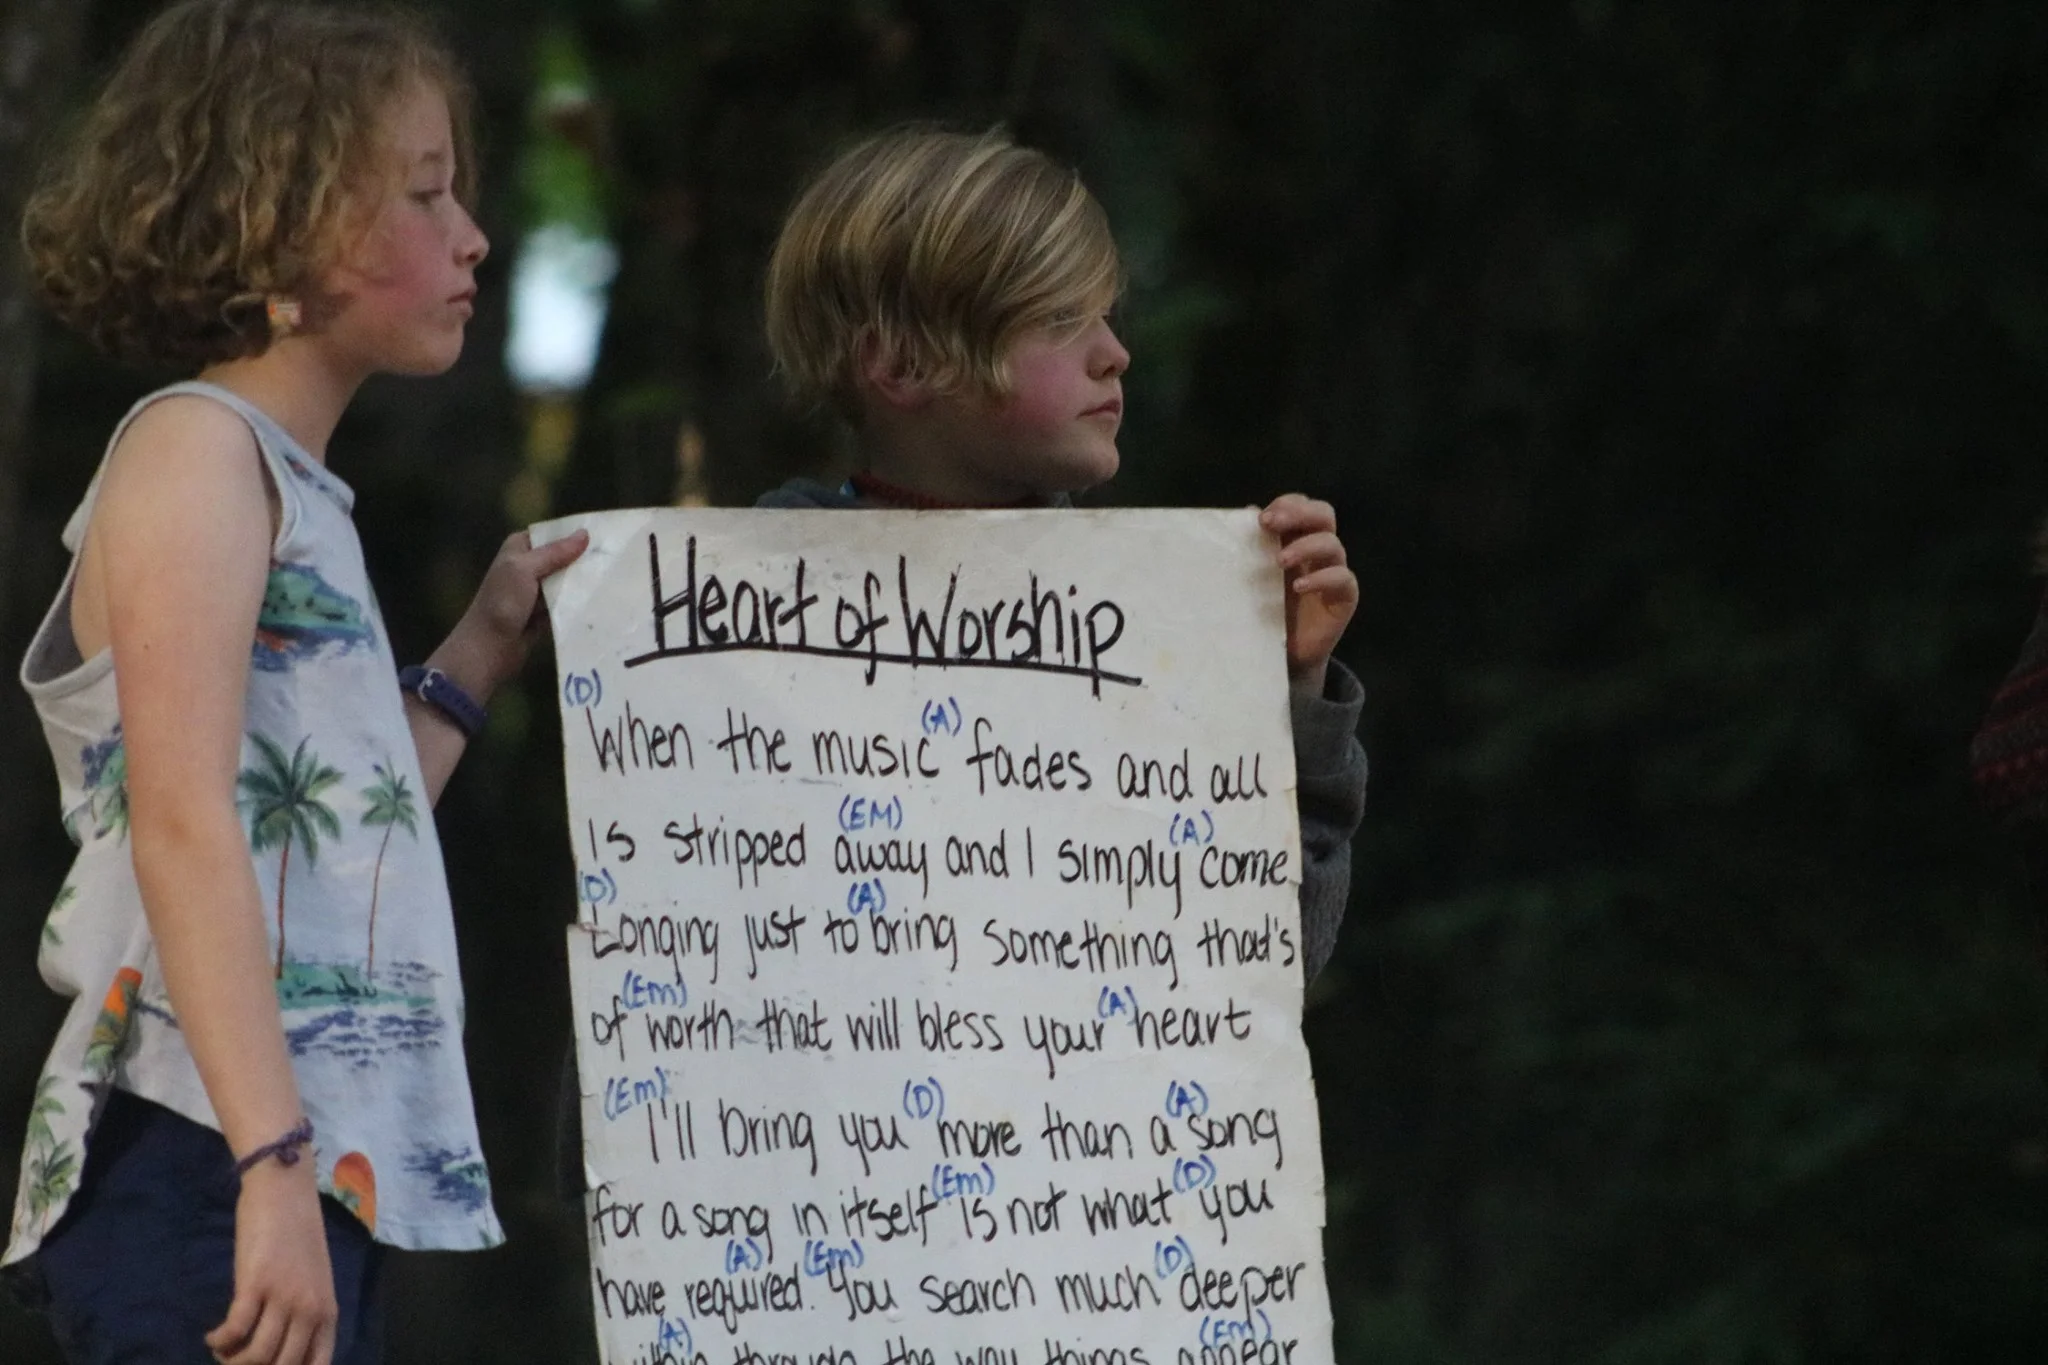 Heart of Worship
(D) (A)
When the music fades and all
(EM) (A)
is stripped away and I simply come
(D) (A)
Longing just to bring something that's
(Em) (A)
of worth that will bless your heart
(Em) (D) (A)
I'll bring you more than a song
(Em) (D)
for a song in itself is not what you
(A) (Em) (D)
have required. You search much deeper
(A) (Em)
within through the way things appear